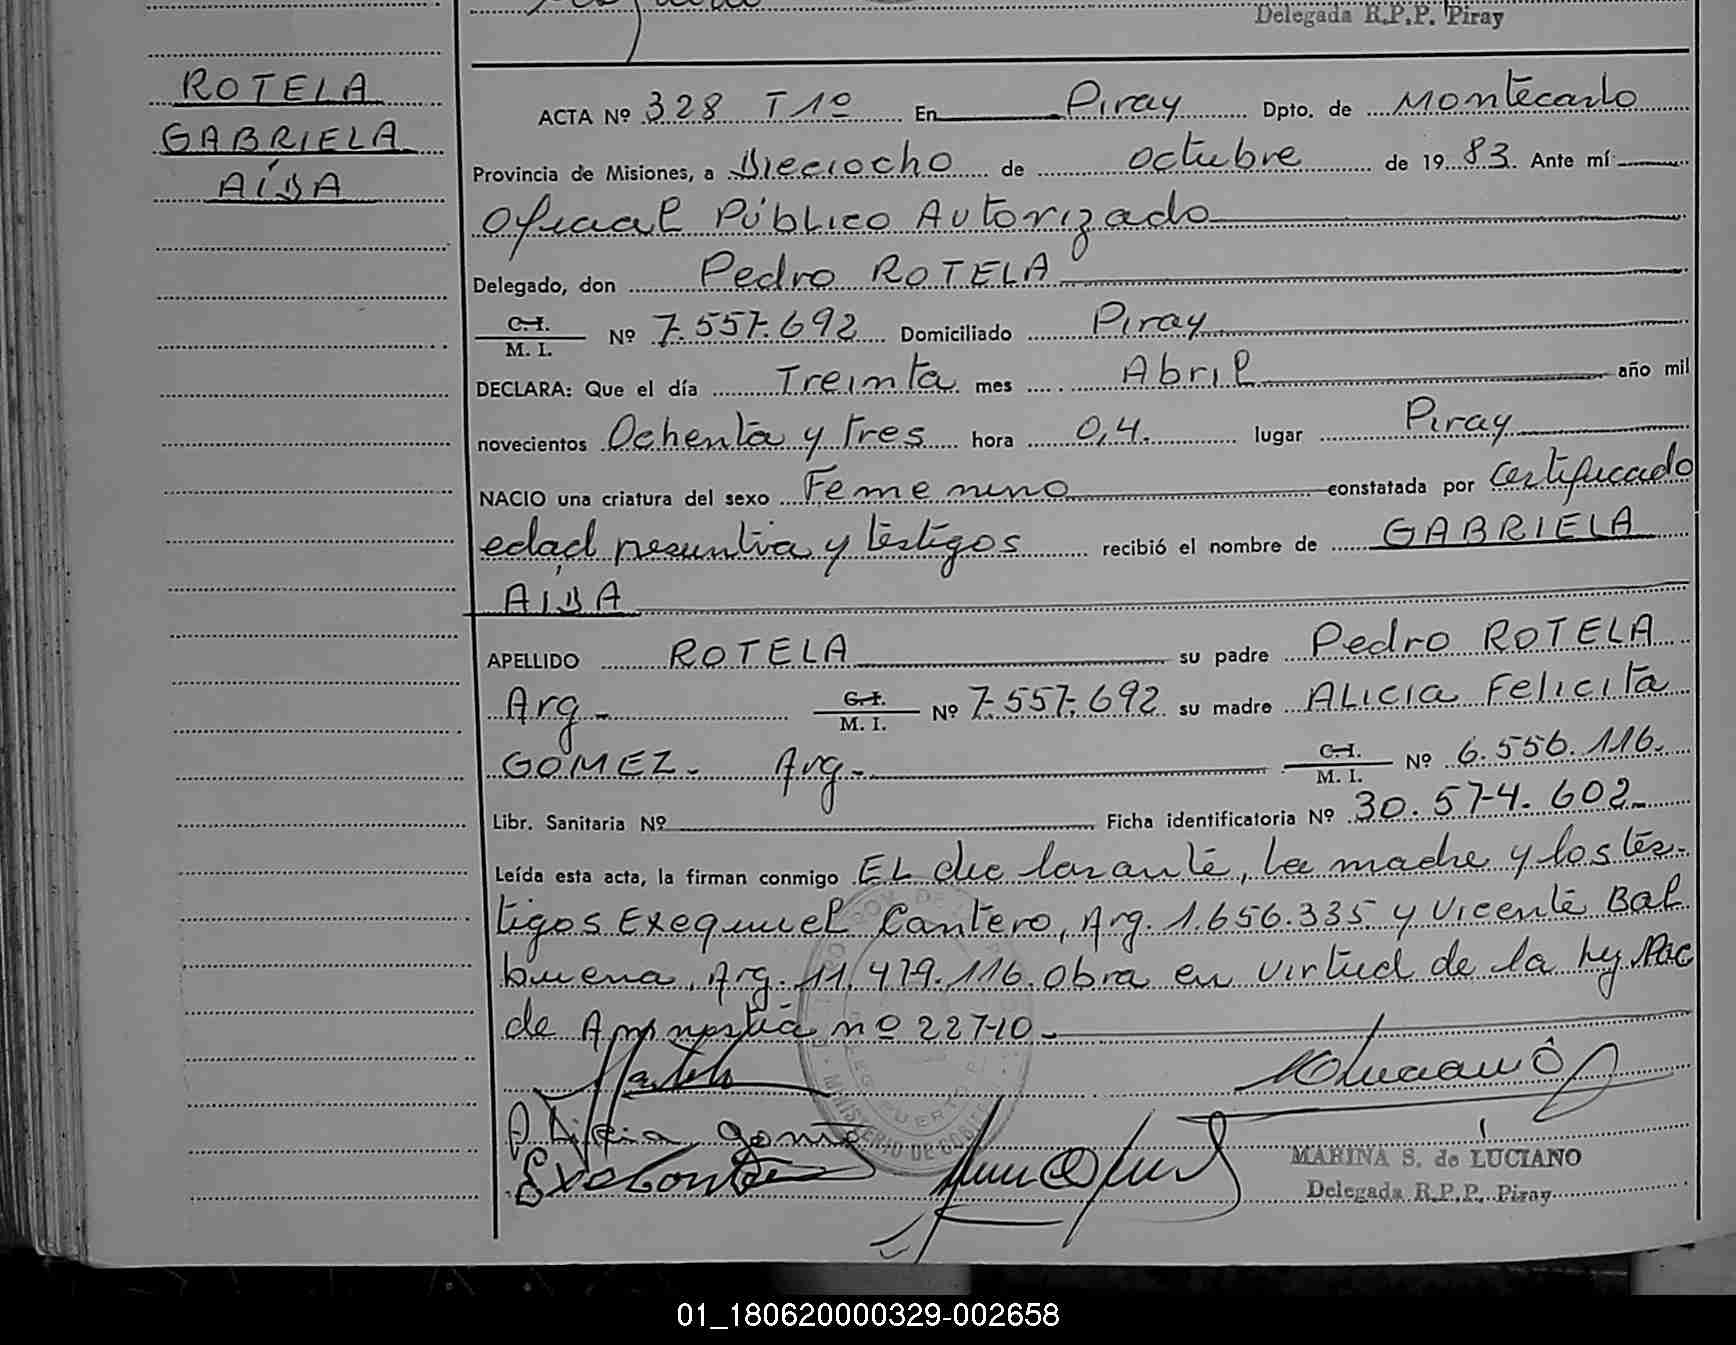 Delegada R.P.P. Piray
ROTELA
GABRIELA
AÍDA
ACTA Nº 328 T 1º En Piray Dpto. de Montecarlo
Provincia de Misiones, a Dieciocho de octubre de 1983. Ante mí
Oficial Público Autorizado
Delegado, don Pedro ROTELA
C. I. / M. I. Nº 7.557.692 Domiciliado Piray
DECLARA: Que el día Treinta mes Abril año mil
novecientos Ochenta y tres hora 0,4. lugar Piray
NACIO una criatura del sexo Femenino constatada por Certificado
edad presuntiva y testigos recibió el nombre de GABRIELA
AÍDA
APELLIDO ROTELA su padre Pedro ROTELA
Arg - C. I. / M. I. Nº 7.557.692 su madre ALICIA Felicita
GOMEZ - Arg - C. I. / M. I. Nº 6.556.116.
Libr. Sanitaria Nº Ficha identificatoria Nº 30.574.602-
Leída esta acta, la firman conmigo EL declarante, la madre y los tes-
tigos Exequiel Cantero, Arg. 1.656.335 y Vicente Bal
buena, Arg. 11.479.116. Obra en virtud de la ley Nac
de Amnestia nº 22710-
Alicia Gomez
MARINA S. de LUCIANO
Delegada R.P.P. Piray
01_180620000329-002658